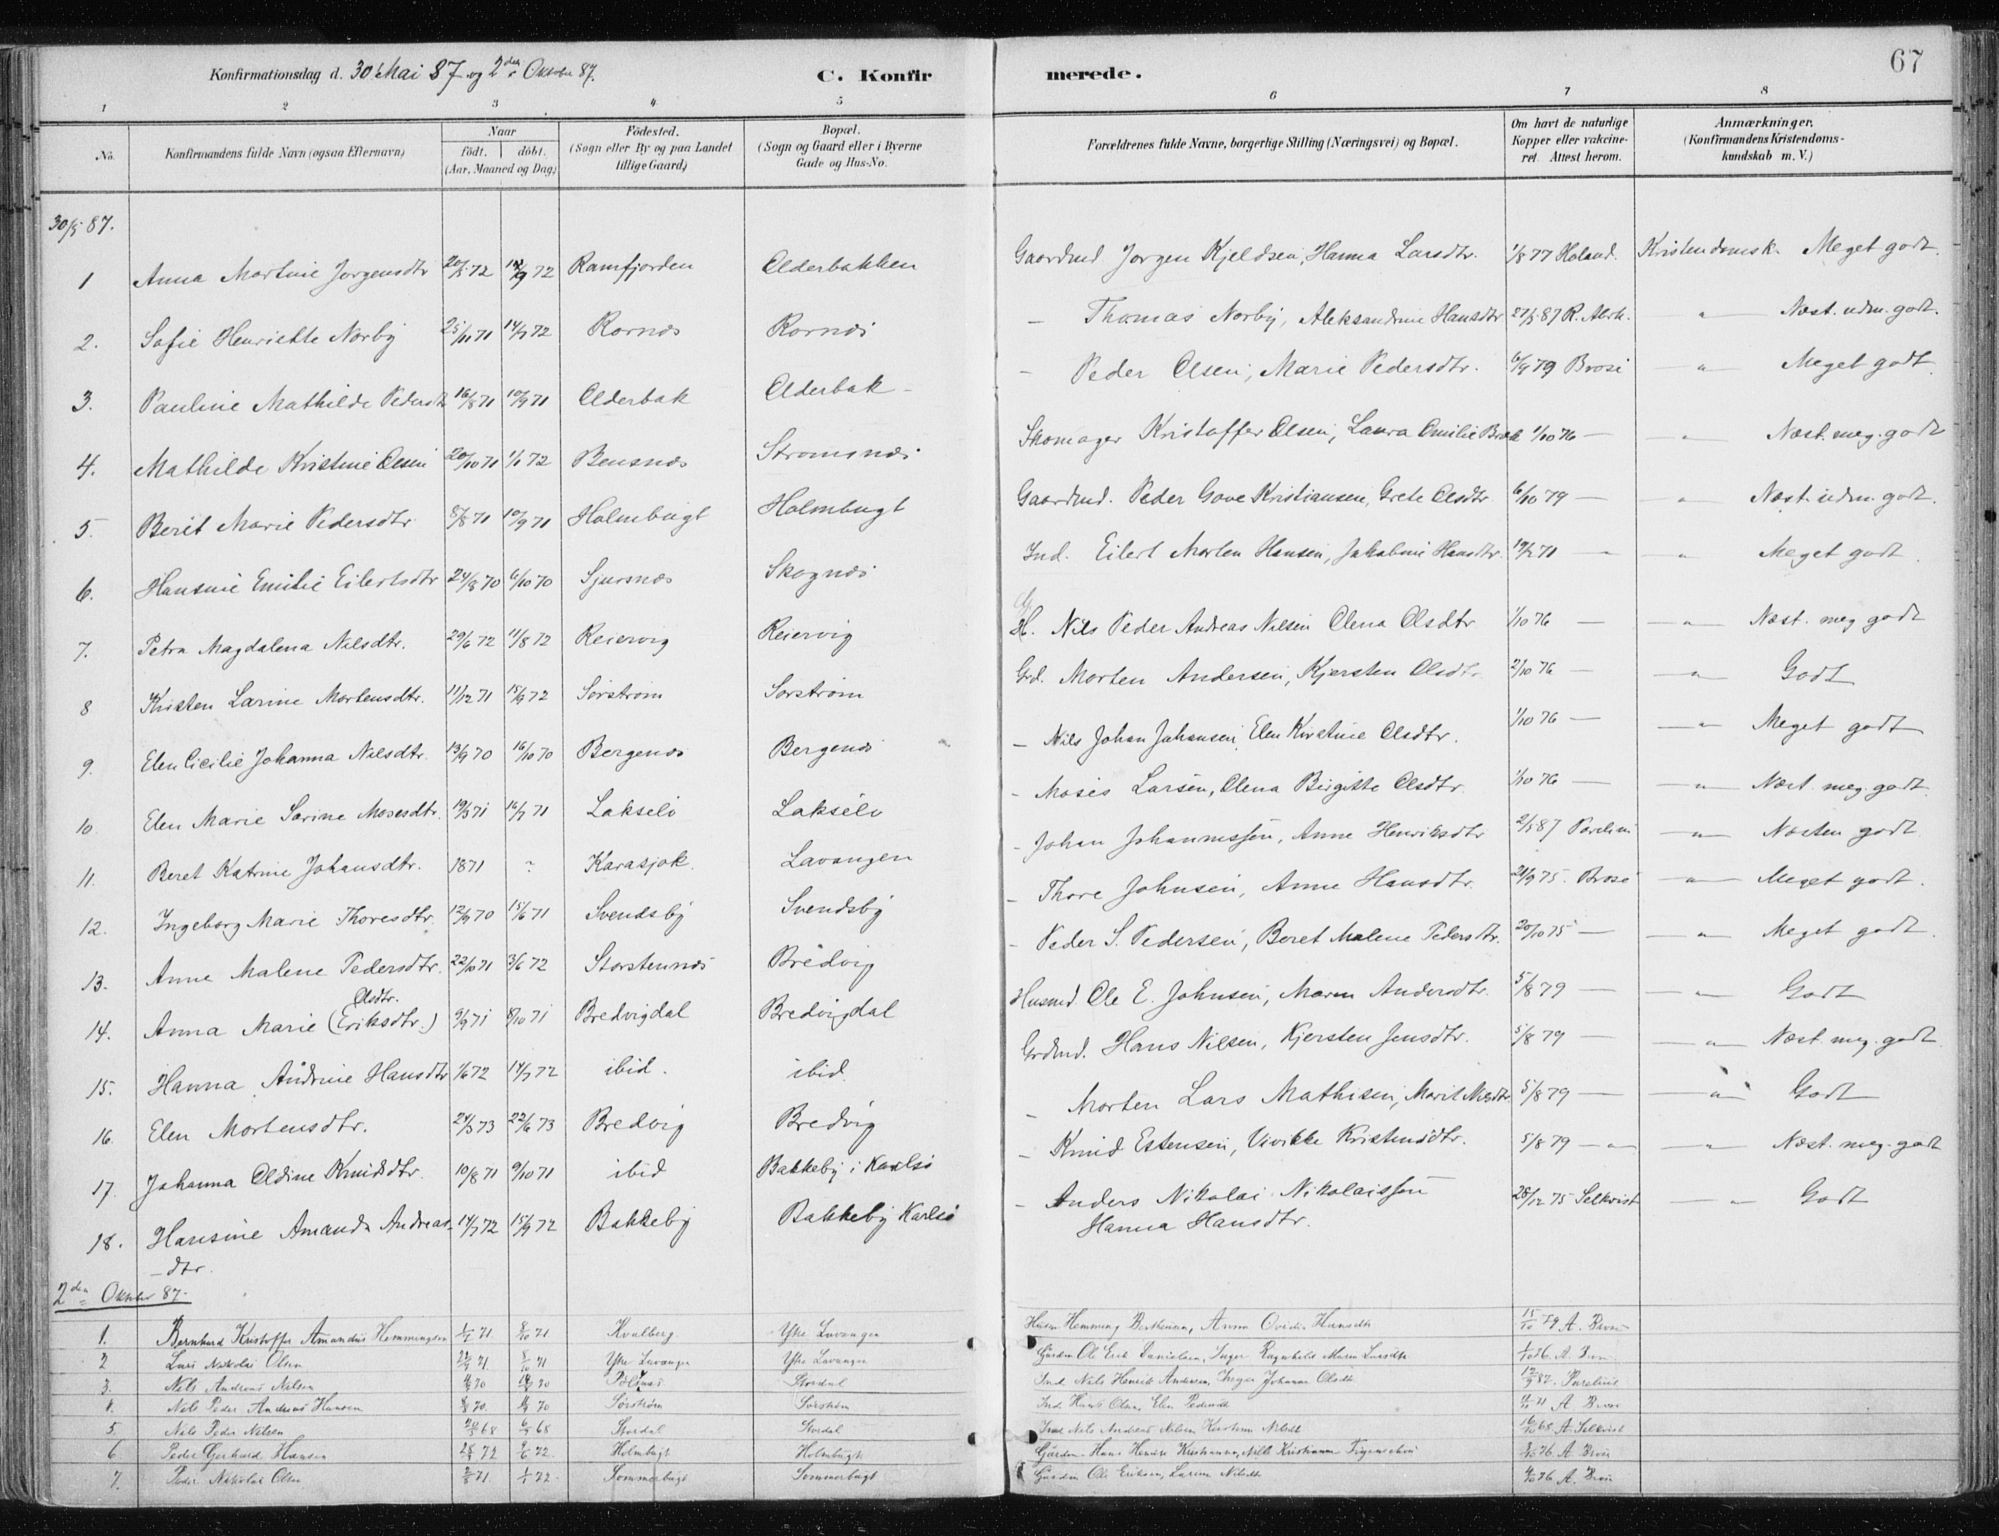 67
Konfirmationsdag d. 30 Mai 87 og 2den Oktober 87. C. Konfir merede.
1 2 3 4 5 6 7 8
No. Konfirmandens fulde Navn (ogsaa Efternavn) Naar født. døbt. (Aar, Maaned og Dag) Fødested. (Sogn eller By og paa Landet tillige Gaard) Bopæl. (Sogn og Gaard eller i Byerne Gade og Hus-No. Forældrenes fulde Navne, borgerlige Stilling (Næringsvei) og Bopæl. Om havt de naturlige Kopper eller vakcineret. Attest herom. Anmærkninger. (Konfirmandens Kristendomskundskab m. V.)
30/5 87.
1 Anna Martine Jorgensdtr 20/5 72 72 Ramfjorden Olderbakken Gaardmd Jorgen Kjeldsen, Hanna Larsdtr. 1/8 77 Koland. Kristendomsk. Meget godt.
2. Sofie Henriette Norby 25/10 71 14/7 72 Kornæs Kornæs — Thomas Norby, Aleksandrine Hansdtr 27/5 87 R. " Næst. udm. godt.
3. Pauline Mathilde Pedersdtr 16/8 71 10/9 71 Olderbak Olderbak - Peder Olsen, Marie Pedersdtr. 6/9 79 Brose " Meget godt
4. Mathilde Kristine Olsen 20/10 71 1/1 72 Bensnæs Stromsnæs Skomager Kristoffer Olsen, Laura Emilie 1/10 76 — " Næst. meg. godt
5. Berit Marie Pedersdtr 8/8 71 10/9 71 Holmbugt Holmbugt Gaardmd. Peder Gove Kristiansen, Grete Olsdtr 6/10 79 — " Næst. udm. godt.
6. Hansine Emilie Eilertsdtr 24/8 70 6/10 70 Sjursnæs Skognæs Ind. Eilert Morten Hansen, Jakobine Hansdtr. 19/7 71 — " Meget godt
7. Petra Magdalena Nilsdtr. 29/6 72 11/8 72 Reiervig Reiervig H. Nils Peder Andreas Nilsen Olena Olsdtr 1/10 76 — " Næst. meg godt
8 Kristen Larine Mortensdtr. 11/12 71 15/9 72 Sorstrom Sorstrom Grd. Morten Andersen, Kjersten Olsdtr. 2/10 76 — " Godt
9. Elen Cicilie Johanna Nilsdtr. 13/9 70 16/10 70 Bergenæs Bergenæs — Nils Johan Johansen, Elen Kirstine Olsdtr. 1/10 76 — " Meget godt
10. Elen Marie Sarine Mosesdtr. 19/3 71 16/7 71 Lakselv Lakselv - Moses Larsen, Olena Birgitte Olsdtr. 1/10 76 — " Næst. meg. godt.
11. Beret Katrine Johansdtr. 1871 ? Karasjok. Lavangen - Johan Johannessen, Anne Henriksdtr 2/5 87 Parelius " Næsten godt
12. Ingeborg Marie Thoresdtr. 12/9 70 15/6 71 Svendsby Svendsby - Thore Johnsen, Anne Hansdtr. 21/9 75. Brose " Meget godt.
13. Anne Malene Pedersdtr. 22/10 71 3/6 72 Storstennæs Bredvig - Peder S. Pedersen, Beret Malene Pedersdtr. 20/10 75 — " Meget godt.
Olsdtr.
14. Anna Marie (Eriksdtr.) 9/9 71 8/10 71 Bredvigdal Bredvigdal Husmd Ole E. Johnsen, Maren Andersdtr. 5/8 79 — " Godt
15. Hanna Andrine Hansdtr 1/6 72 14/7 72 ibid. ibid. Grdmd. Hans Nilsen, Kjersten Jensdtr. 5/8 79 — " Næst. meg. godt
16. Elen Mortensdtr. 24/3 73 22/6 73 Bredvig Bredvig - Morten Lars Mathisen, Marit 5/8 79 — " Godt
17. Johanna Oldine Knudsdtr. 10/8 71 9/10 71 ibid Bakkeby i Karlsö - Knud Estensen, Vivikke Kristensdtr. 5/8 79 — " Næst. meg. godt
18. Hansine Amanda Andreas- 14/7 72 15/9 72 Bakkeby Bakkeby Karlsö - Anders Nikolai Nikolaissen 28/12 75 Selkvist " Godt
—dtr. Hanna Hansdtr.
2den Oktober 87.
1. Bernhard Kristoffer Amandus Hemmingsen 71 8/10 71 Kvalberg Ytre Lavangen Husm Hemming Berthensen, Anna Hansdtr 15/10 79 A. Brose
2 Lars Nikolai Olsen 71 8/10 71 Ytre Lavangen Ytre Lavangen Gårdm Ole Erik Danielsen, Inger Ragnhild Maren Larsdtr 76 A. Brose
3. Nils Andreas Nilsen 70 70 Stordal Ind Nils Henrik Andersen, Inger Johanna Olsdtr 12/9 87. Parelius
4. Nils Peder Andreas Hansen 70. 70 Sorstrom Sorstrom Ind. Hans Olsen, Elen Pedersdtr 71 A Brose
5. Nils Peder Nilsen 68 68 Stordal Stordal Ind Nils Andreas Nilsen Kirsten Nilsdtr 16/10 68 A. Selkvist
6 Peder Gerhard Hansen 72 72 Holmbugt Holmbugt Gårdm Hans Henrik Kristiansen, 76 A. Brose
7. Peder Nikolai Olsen 71. 72 Sommerbugt Sommerbugt Gårdm Ole Eriksen, Larine Nilsdtr 76 A. Brose